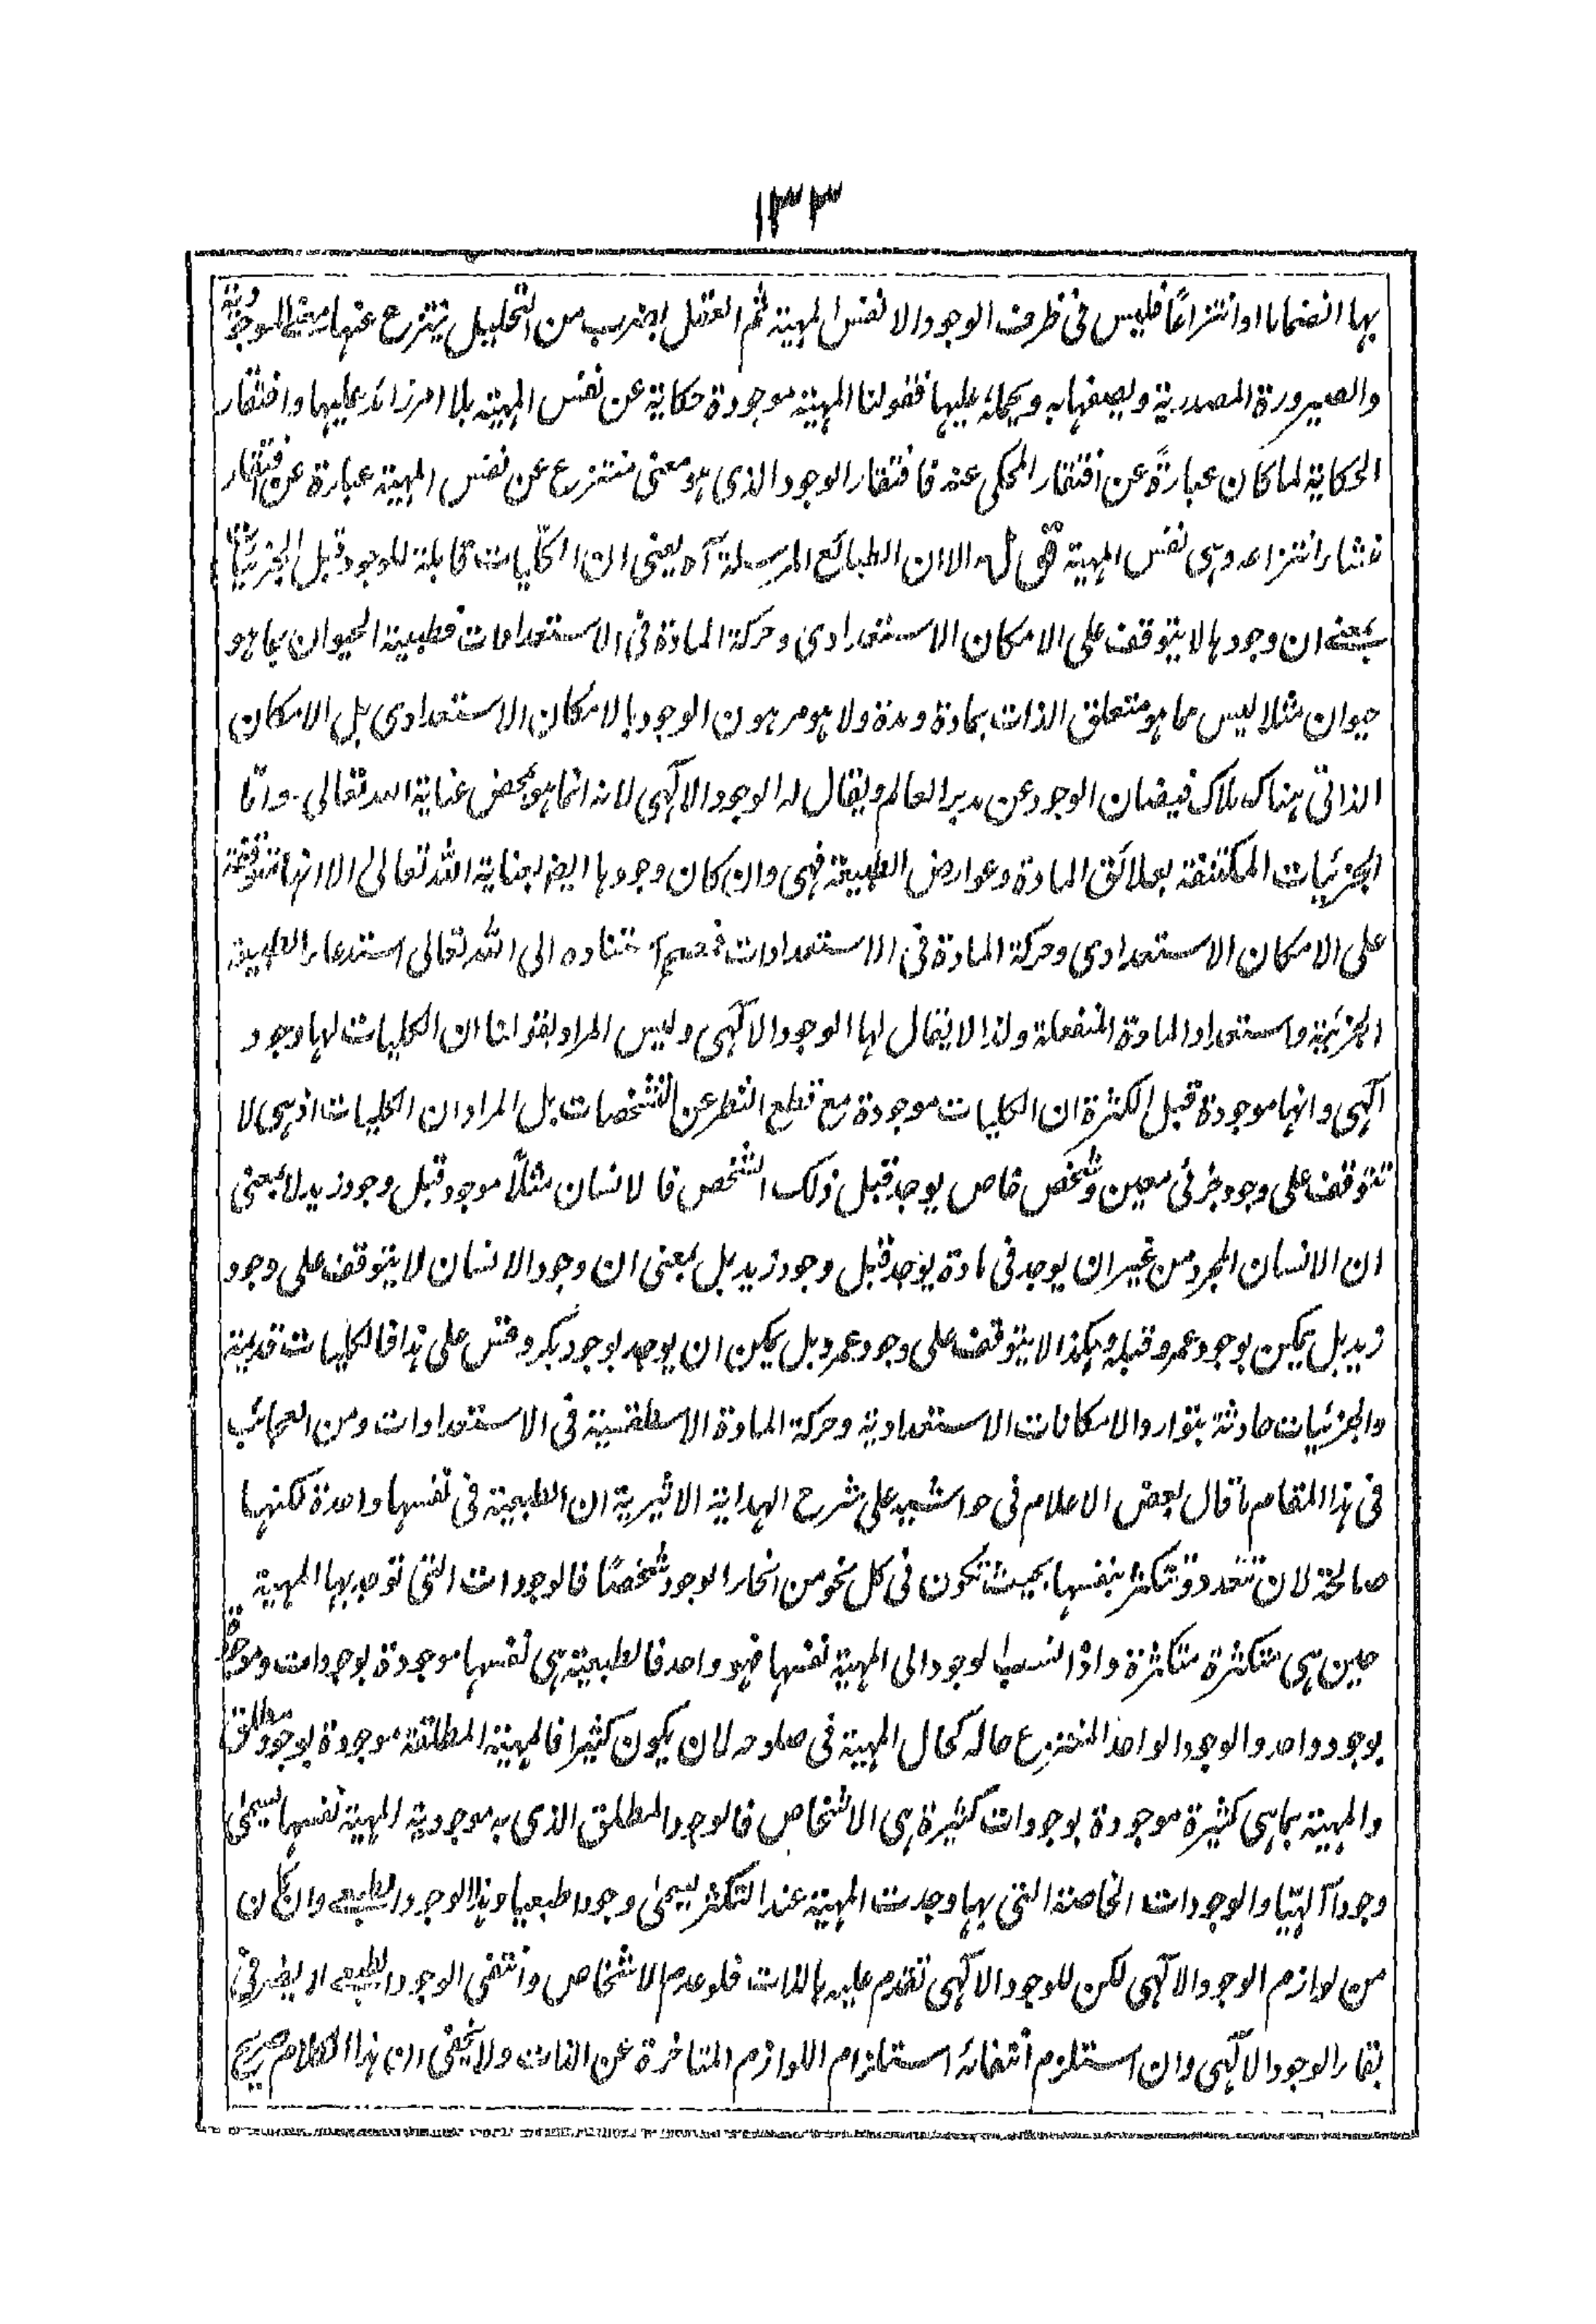 ١٣٣
بها انضماما او انتزاعًا فليس فى ظرف الوجود الا نفس المهية ثم العقل بضرب من التحليل ينتزع عنها معنى الموجودية
والصيرورة المصدرية ويصفها به ويحمله عليها فقولنا المهية موجودة حكاية عن نفس المهية بلا امر زائد عليها وافتقار
الحكاية لما كان عبارةً عن افتقار المحكى عنه فافتقار الوجود الذى هو معنى منتزع عن نفس المهية عبارة عن افتقار
منشاء انتزاعه وهى نفس المهية قوله الا ان الطبائع المرسلة آه يعنى ان الكليات قابلة للوجود قبل الجزئيات
بمعنى ان وجودها لا يتوقف على الامكان الاستعدادى وحركة المادة فى الاستعدادات فطبيعة الحيوان بما هو
حيوان مثلا ليس مما هو متعلق الذات بمادة ومدة ولا هو مرهون الوجود بالامكان الاستعدادى بل الامكان
الذاتى هناك ملاك فيضان الوجود عن مدبر العالم ويقال له الوجود الالٓهى لانه انما هو بمحض عناية الله تعالى واما
الجزئيات المكتنفة بعلائق المادة وعوارض الطبيعة فهى وان كان وجودها ايضا بعناية الله تعالى الا انها متوقفة
على الامكان الاستعدادى وحركة المادة فى الاستعدادات استناده الى الله تعالى استدعاء الطبيعة
الجزئية واستعداد المادة المنفعلة ولذا لا يقال لها الوجود الالٓهى وليس المراد بقولنا ان الكليات لها وجود
آلٓهى وانها موجودة قبل الكثرة ان الكليات موجودة مع قطع النظر عن التشخصات بل المراد ان الكليات اذ هى لا
تتوقف على وجود جزئى معين وشخص خاص يوجد قبل ذلك الشخص فالانسان مثلاً موجود قبل وجود زيد لا بمعنى
ان الانسان المجرد من غير ان يوجد فى مادة يوجد قبل وجود زيد بل بمعنى ان وجود الانسان لا يتوقف على وجود
زيد بل يمكن بوجود عمرو قبله وهكذا لا يتوقف على وجود عمرو بل يمكن ان يوجد بوجود بكر وقس على هذا فالكليات قديمة
والجزئيات حادثة بتوارد الامكانات الاستعدادية وحركة المادة الاسطقسية فى الاستعدادات ومن العجائب
فى هذا المقام ما قال بعض الاعلام فى حواشيه على شرح الهداية الاثيرية ان الطبيعة فى نفسها واحدة لكنها
صالحة لان تتعدد وتتكثر بنفسها بحيث تكون فى كل نحو من انحاء الوجود شخصًا فالوجودات التى توجد بها المهية
حين هى متكثرة متكثرة واذا نسب الوجود الى المهية نفسها فهو واحد فالطبيعة هى نفسها موجودة بوجودات وموجودة
بوجود واحد والوجود الواحد المنتزع حاله كحال المهية فى صلوحه لان يكون كثيرا فالمهية المطلقة موجودة بوجود مطلق
والمهية بما هى كثيرة موجودة بوجودات كثيرة هى الاشخاص فالوجود المطلق الذى به موجودية المهية نفسها يسمى
وجوداً آلٓهيّا والوجودات الخاصة التى بها وجدت المهية عند التكثر يسمى وجودا طبعيا وهذا الوجود الطبيعى وان كان
من لوازم الوجود الالٓهى لكن للوجود الالٓهى تقدم عليه بالذات فلو عدم الاشخاص وانتفى الوجود الطبيعى لا يضر فى
بقاء الوجود الالٓهى وان استلزم انتفائه استلزام اللوازم المتاخرة عن الذات ولا يخفى ان هذا الكلام صريح